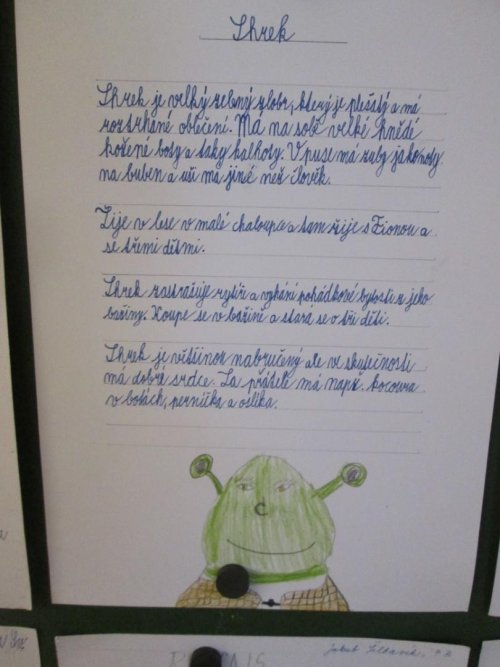 Shrek
Shrek je velký zelený zlobr, který je plešatý a má
roztrhané oblečení. Má na sobě velké hnědé
kožené boty a taky kalhoty. V puse má zuby jako noty
na buben a uši má jiné než člověk.
Žije v lese v malé chaloupce a tam žije s Fionou a
se třemi dětmi.
Shrek zastrašuje rytíře a vyhání pohádkové bytosti z jeho
bažiny. Koupe se v bažině a stará se o tři děti.
Shrek je většinou nabručený ale ve skutečnosti
má dobré srdce. Za přátele má např. kocoura
v botách, perníčka a oslíka.
Jakub